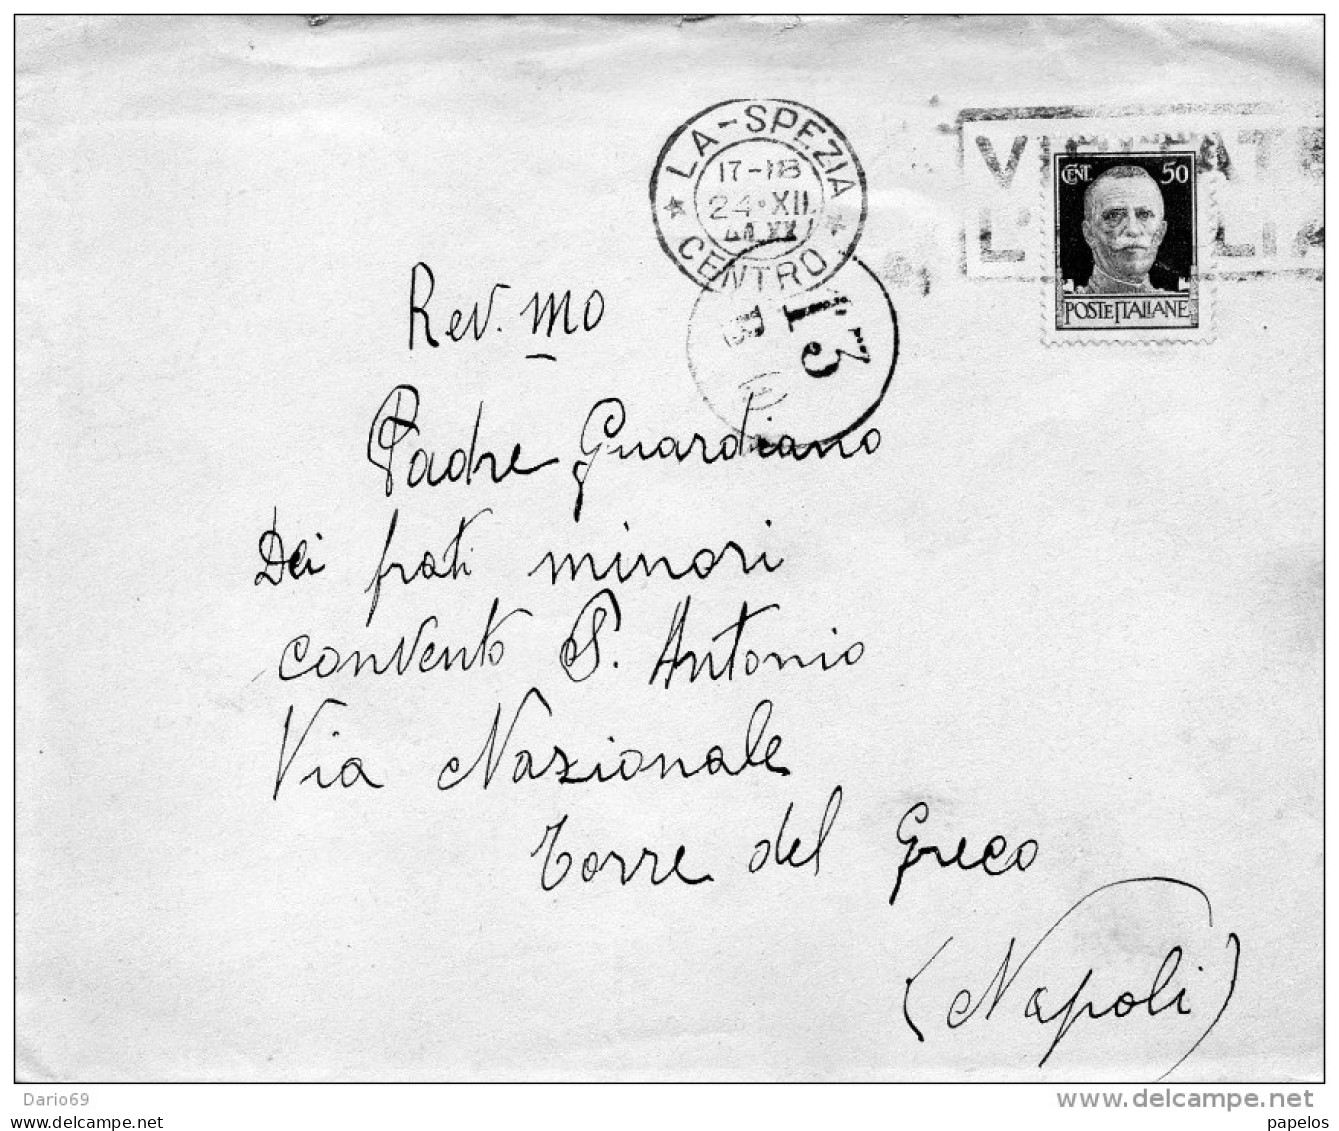 LA-SPEZIA
17-18
24·XII
CENTRO
13
CENT. 50
POSTE ITALIANE
Rev. mo
Padre Guardiano
Dei frati minori
convento S. Antonio
Via Nazionale
Torre del Greco
(Napoli)
Dario69
www.delcampe.net
own work
papelos